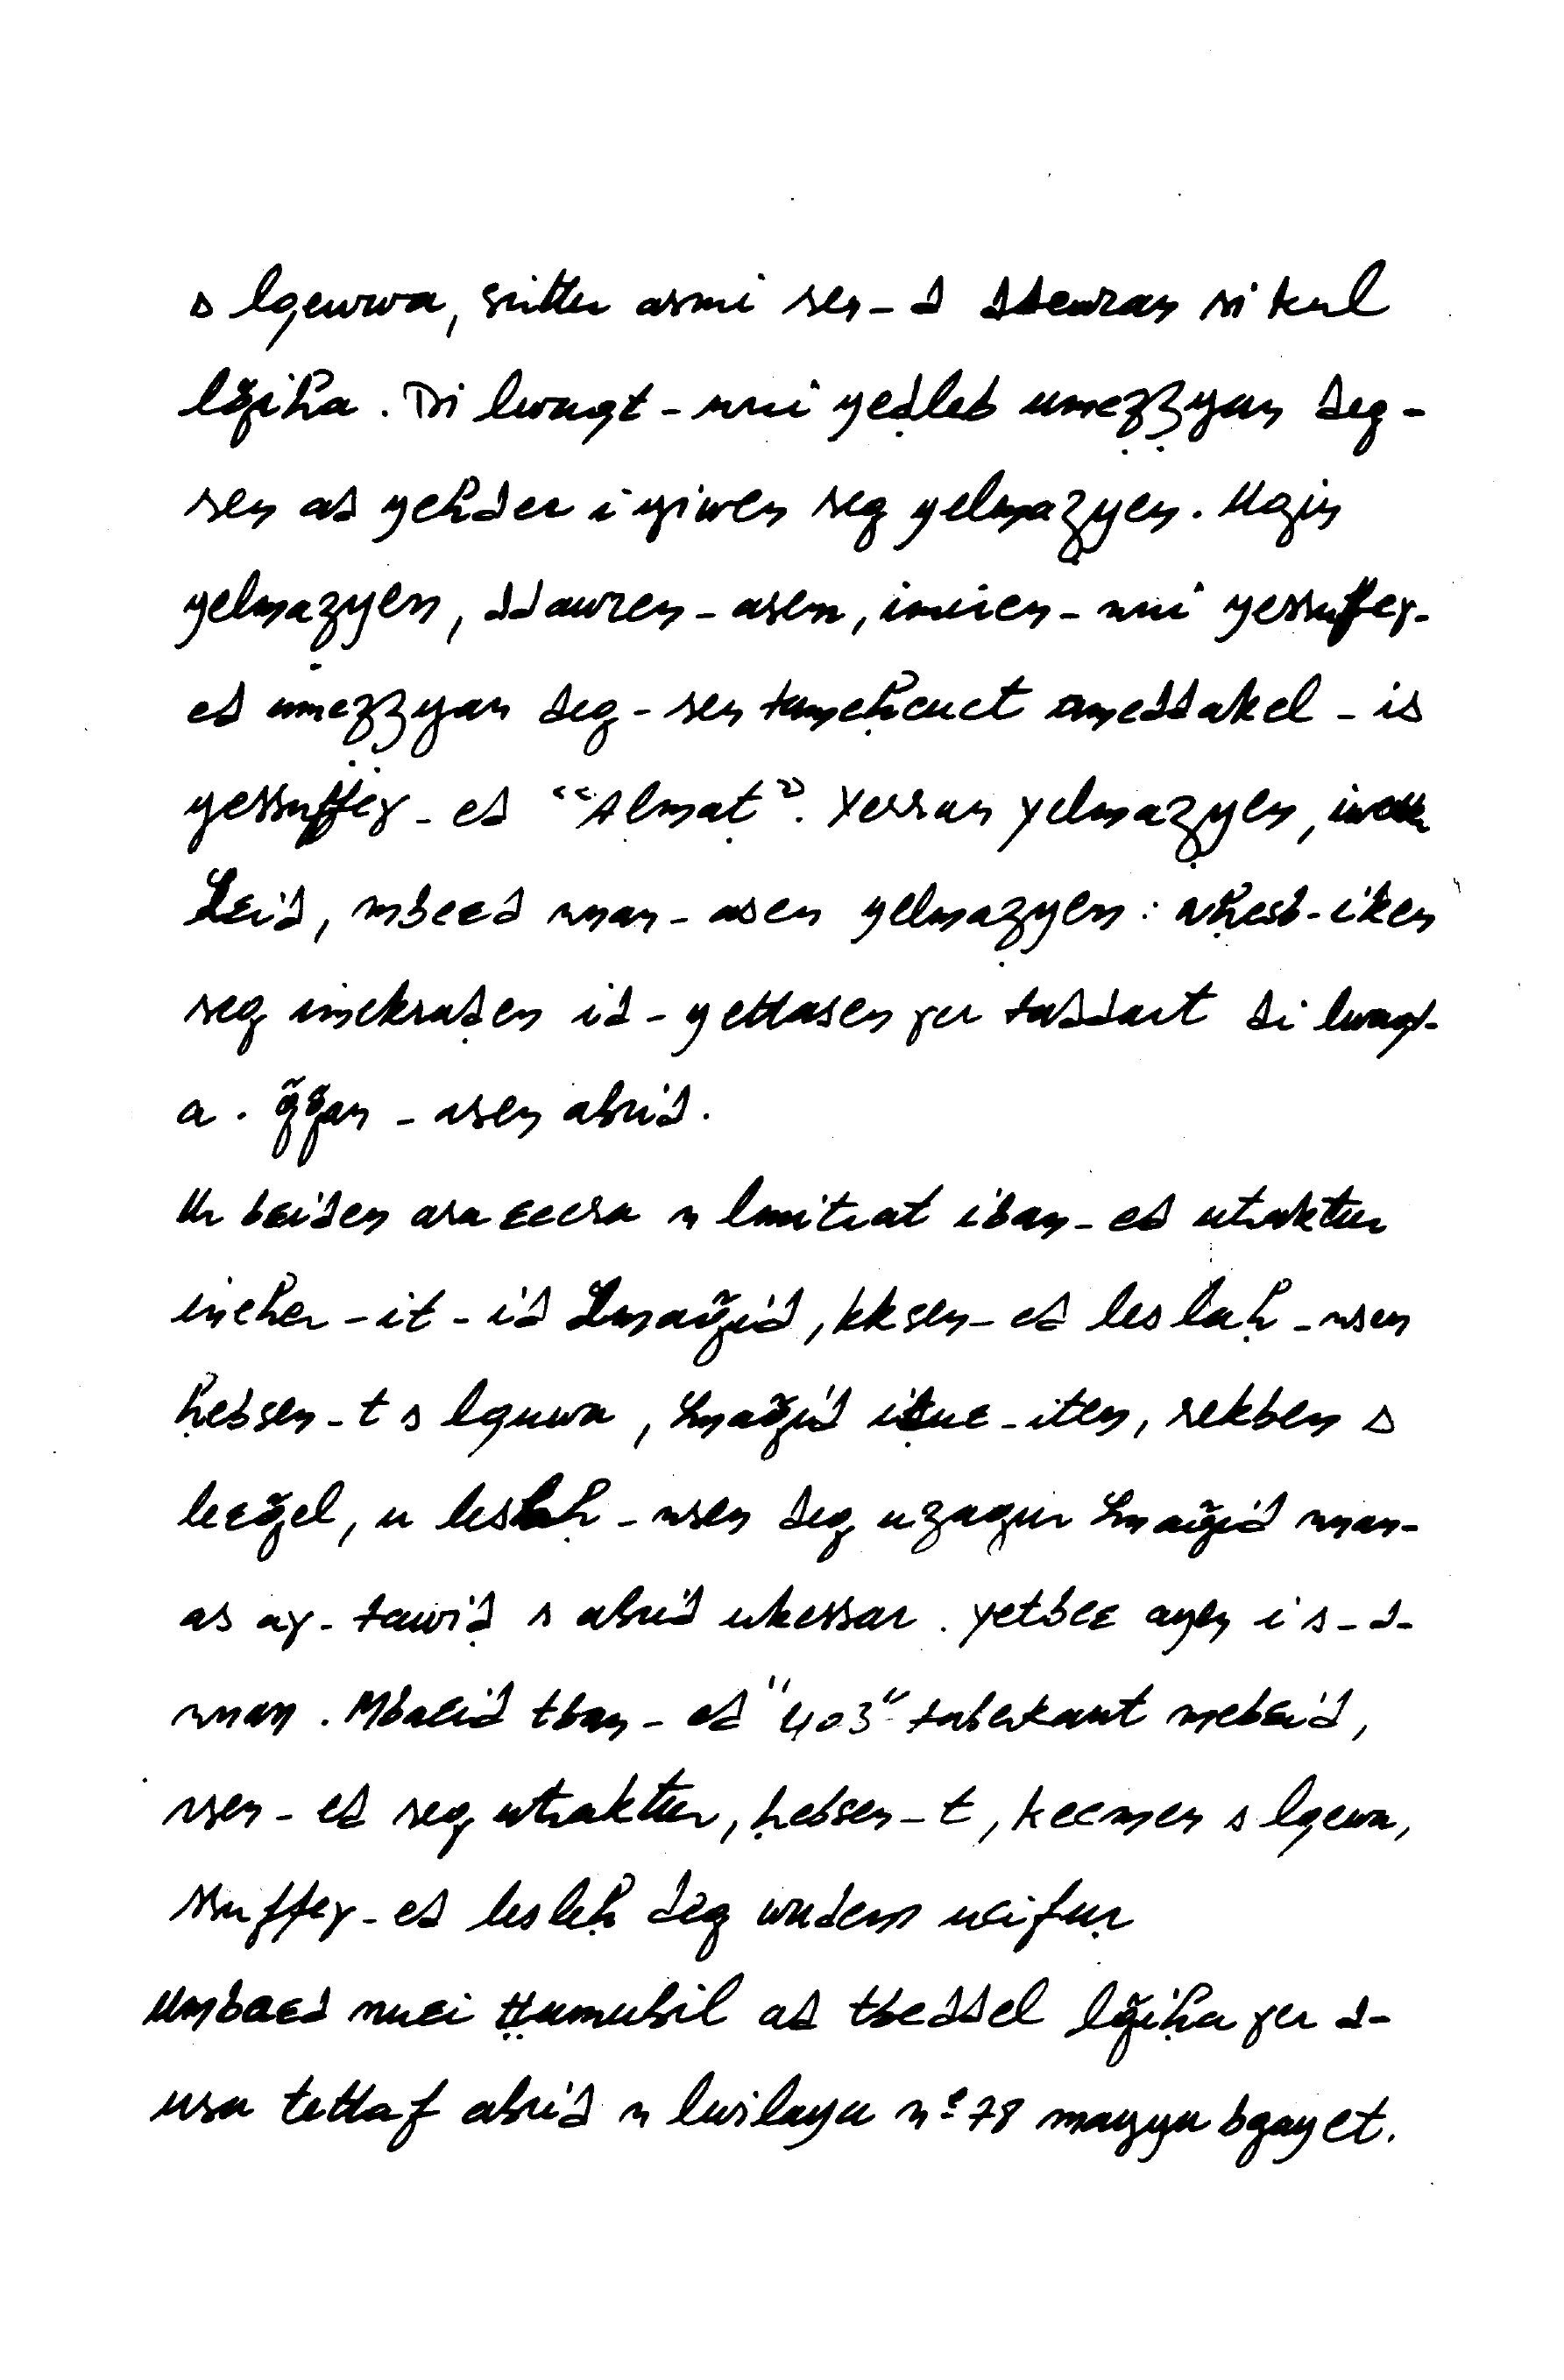 s lqewwa, snitter asmi sen-d ddewran si kul
lǧiha. Di lwaqt-nni yeḍleb umeẓẓyan deg-
sen ad yehder i yiwen seg yelmaẓyen. Ugin
yelmaẓyen, ddawren-asen, imiren-nni yessuffeɣ-
ed umeẓẓyan deg-sen tameḥcuct ameddakel-is
yessuffeɣ-ed "Almaṭ". Xerran yelmaẓyen,
Lɛid, mbeɛd nnan-asen yelmaẓyen: nḥesb-iken
seg imekraḍen id-yettasen ɣer taddart di lwaqt-
a. ǧǧan-asen abrid.
Ur bɛiden ara ɛecra n lmitrat iban-ed utraktur
ineher-it-id Lmaǧid, kksen-ed leslaḥ-nsen
ḥebsen-t s lquwa, Lmaǧid iṭuɛ-iten, rekben s
leɛǧel, u leslaḥ-nsen deg uzagur Lmaǧid nnan-
as aɣ-tawiḍ s abrid ukessar. Yetbeɛ ayen i s-d-
nnan. Mbaɛid tban-ed "403" taberkant mebɛid,
rsen-ed seg utraktur, ḥebsen-t, keɛmen s lqewa,
ssuffeɣ-ed lesleḥ deg wudem ucifuṛ
Umbaɛd nnɛi ṭṭumubil ad tbeddel lǧiha ɣer d-
usa tettaf abrid n lwilaya nº 78 mayyu bgayet.